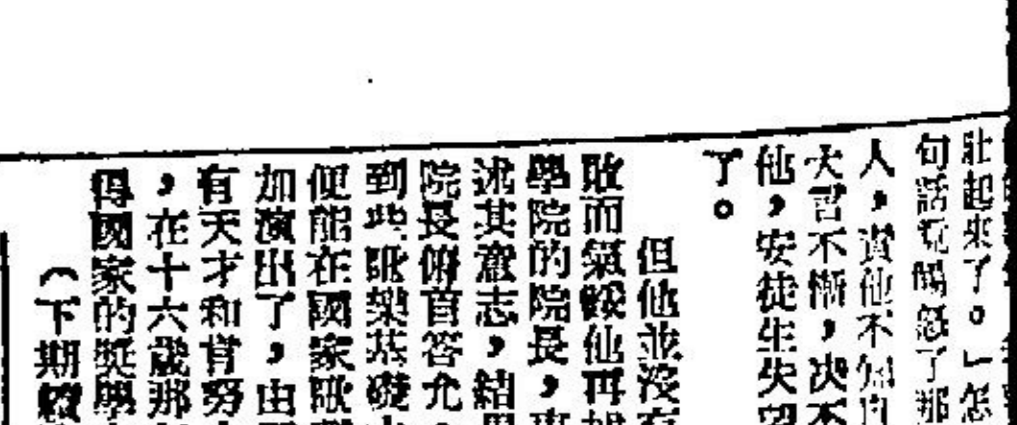 壯起來了。」怎
句話竟觸怒了那
人,責他不知自
大言不慚,决不
他,安徒生失望
了。
但他並沒有
敗而氣餒他再
學院的院長,
述其意志,結果
院長俯首答允,
到些歌樂基礎
便能在國家歌劇
加演出了,由
有天才和肯努
,在十六歲那
得國家的奬學
(下期續